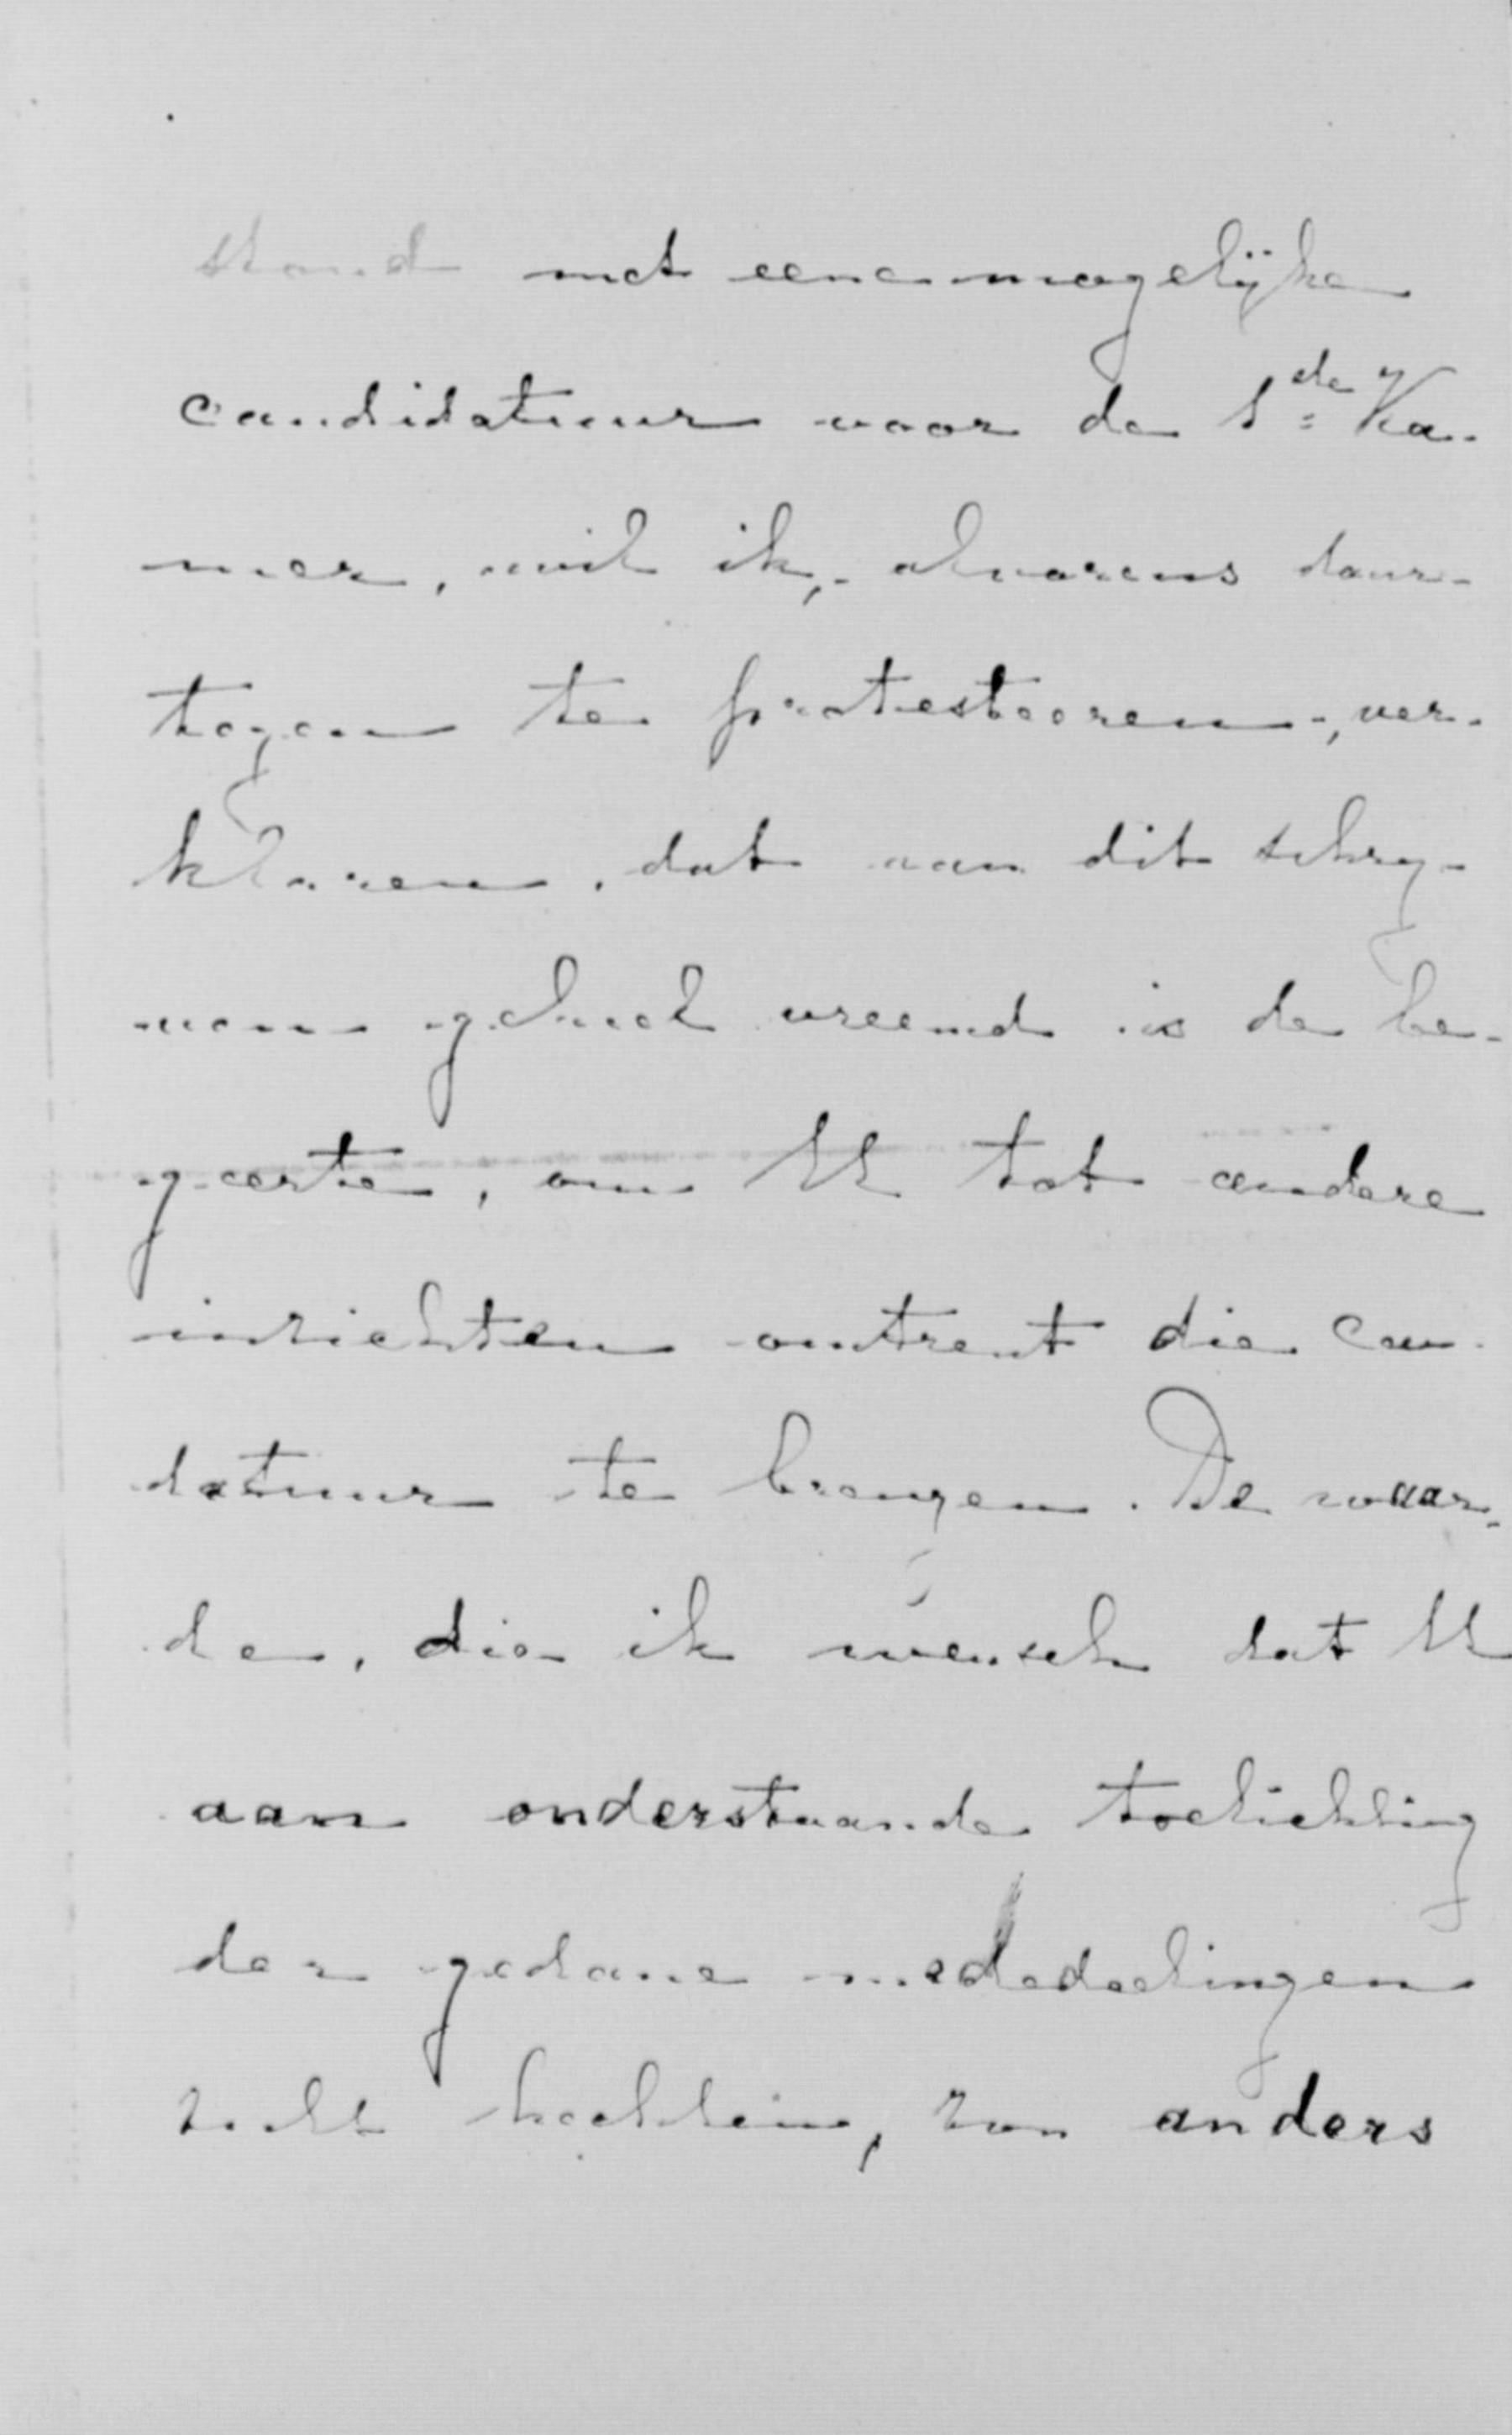 stand met eene mogelijke
candidatuur voor de 1de Ka-
mer, wil ik, - alvorens daar-
tegen te protesteeren -, ver-
klaren, dat aan dit schrij-
ven geheel vreemd is de be-
geerte, om U tot andere
inzichten omtrent die can-
datuur te brengen. De waar-
de, die ik wensch dat U
aan onderstaande toelichting
der gedane mededeelingen
zult hechten, zou anders